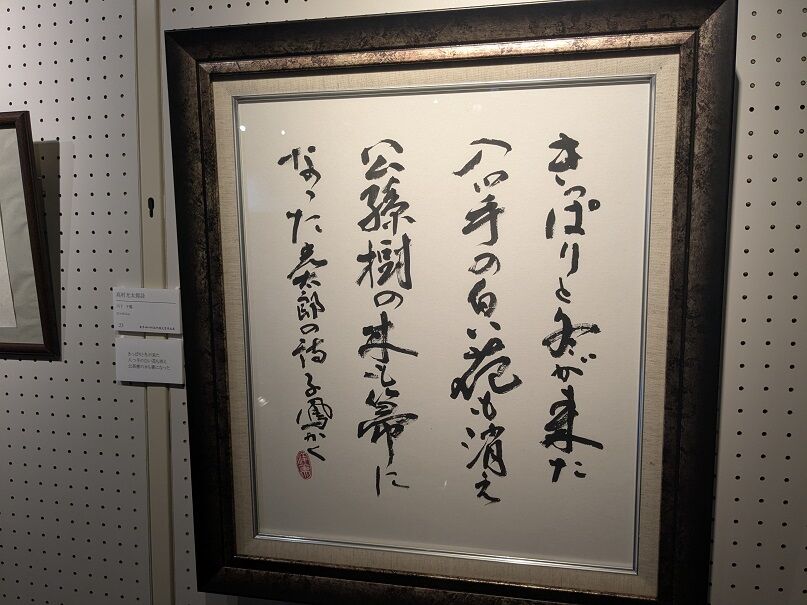 きっぱりと冬が来た
八つ手の白い花も消え
公孫樹の木も箒に
なった 光太郎の詩 子鳳かく
高村光太郎詩
23
きっぱりと冬が来た
八つ手の白い花も消え
公孫樹の木も箒になった